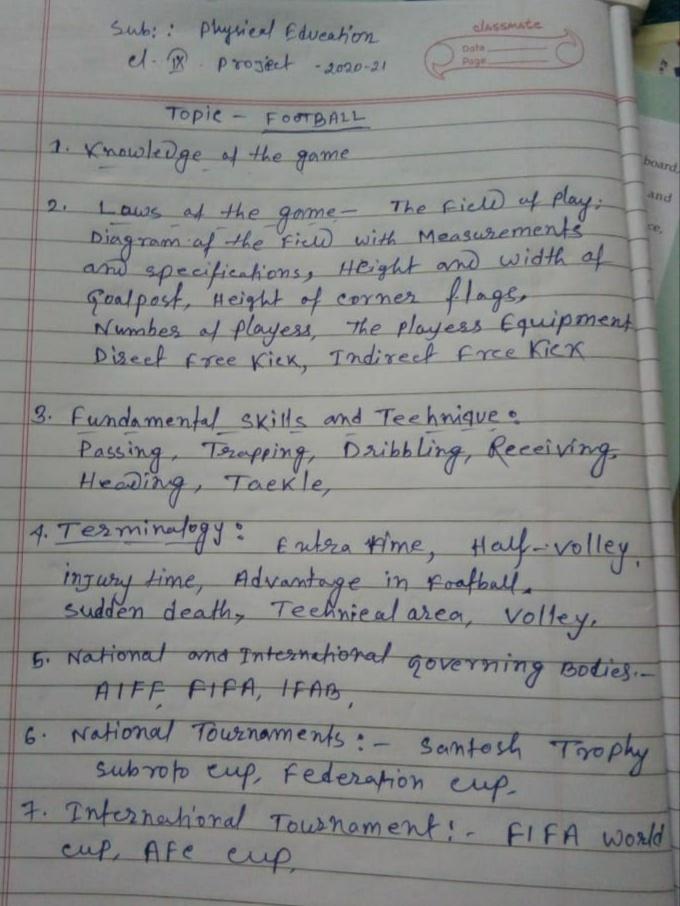 Sub: : Physical Education
classmate
Date
Page
cl. IX . Project - 2020-21
Topic - FOOTBALL
1. Knowledge of the game
board,
2. Laws of the game - The Field of play:
and
Diagram of the Field with Measurements
ce,
and specifications, Height and width of
Goalpost, Height of corner flags,
Number of players, The players Equipment
Direct Free Kick, Indirect Free Kick
3. Fundamental skills and Technique:
Passing, Trapping, Dribbling, Receiving,
Heading, Tackle,
4. Terminalogy: Extra time, Half-volley,
injury time, Advantage in Football,
sudden death, Technical area, Volley,
5. National and International Governing Bodies:-
AIFF, FIFA, IFAB,
6. National Tournaments:- Santosh Trophy
Subroto cup, Federation cup.
7. International Tournament:- FIFA world
cup, AFC cup,